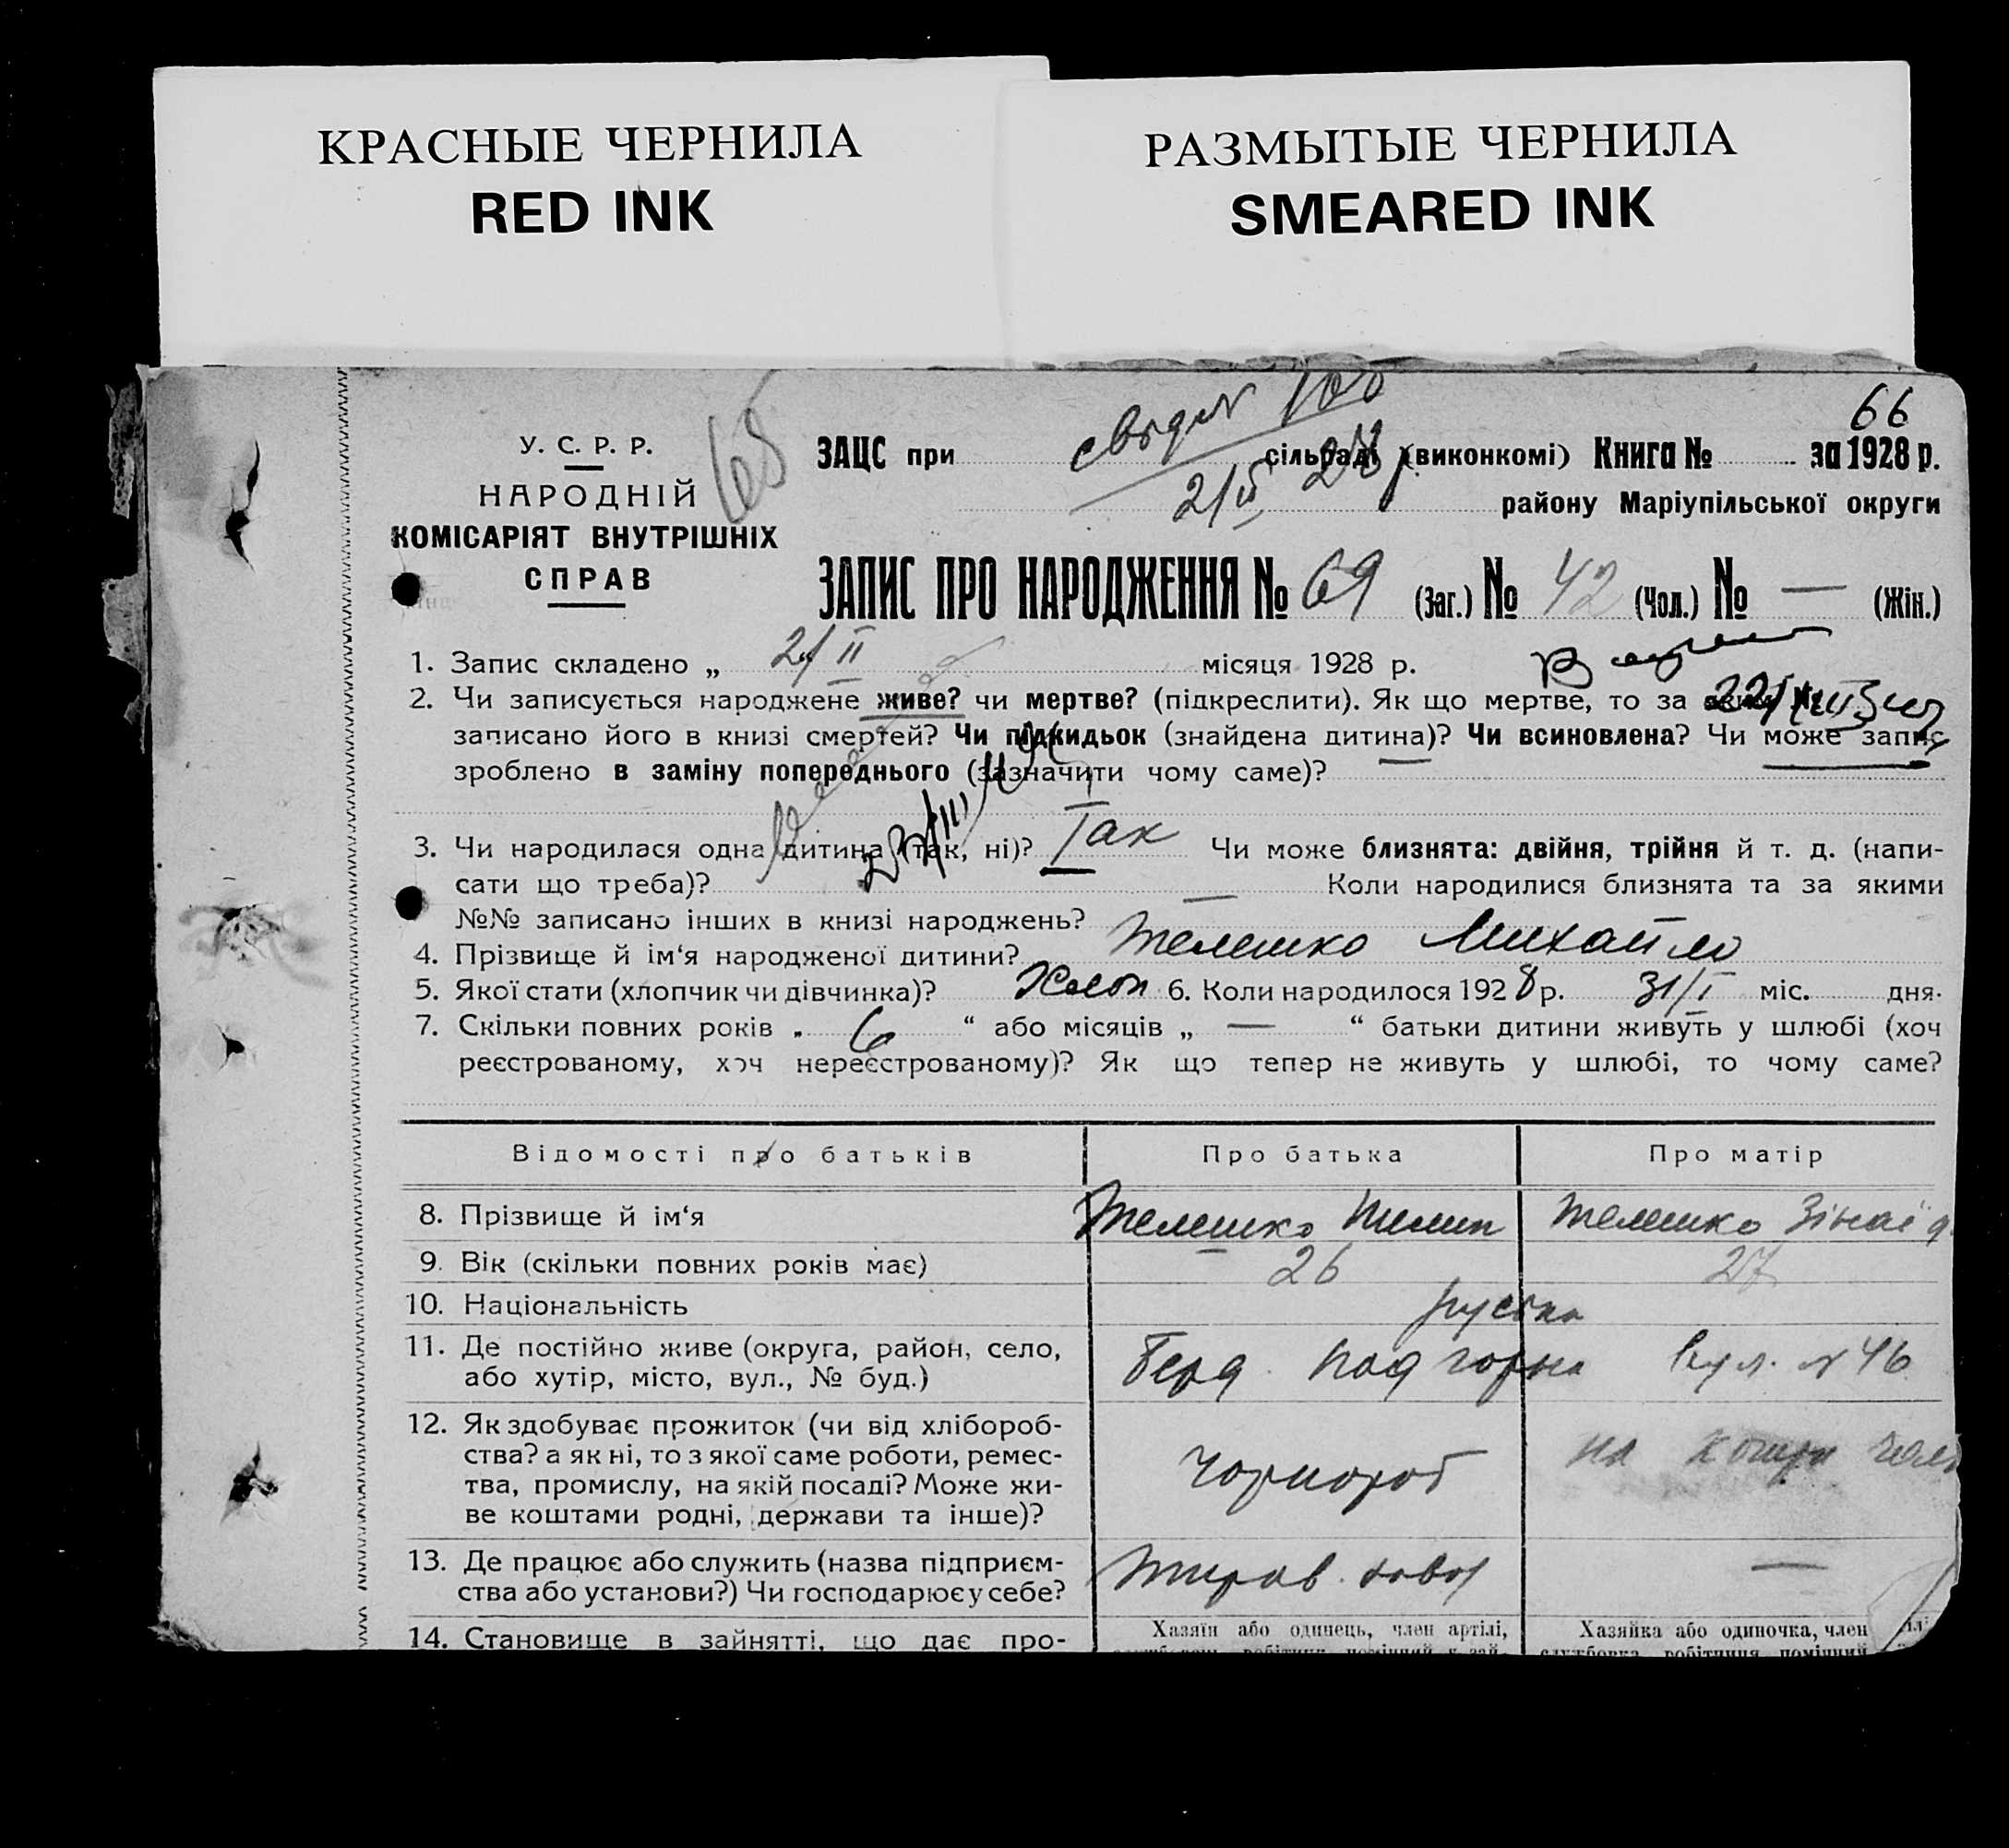 КРАСНЫЕ ЧЕРНИЛА
RED INK
РАЗМЫТЫЕ ЧЕРНИЛА
SMEARED INK
66
У. С. Р. Р.
НАРОДНІЙ
КОМІСАРІЯТ ВНУТРІШНІХ
СПРАВ
ЗАЦС при сільраді (виконкомі) Книга № за 1928 р.
району Маріупільської округи
ЗАПИС ПРО НАРОДЖЕННЯ № 69 (Заг.) № 42 (Чол.) № — (Жін.)
1. Запис складено „ 2/II місяця 1928 р.
2. Чи записується народжене живе? чи мертве? (підкреслити). Як що мертве, то за
записано його в книзі смертей? Чи підкидьок (знайдена дитина)? Чи всиновлена? Чи може запис
зроблено в заміну попереднього (зазначити чому саме)?
3. Чи народилася одна дитина (так, ні)? Так Чи може близнята: двійня, трійня й т. д. (напи-
сати що треба)? — Коли народилися близнята та за якими
№№ записано інших в книзі народжень?
4. Прізвище й ім‘я народженої дитини? Телешко Михайло
5. Якої стати (хлопчик чи дівчинка)? Хлоп 6. Коли народилося 1928 р. 31/I міс. дня.
7. Скільки повних років „ 6 “ або місяців „ — “ батьки дитини живуть у шлюбі (хоч
реєстрованому, хоч нереєстрованому)? Як що тепер не живуть у шлюбі, то чому саме?
Відомості про батьків Про батька Про матір
8. Прізвище й ім‘я Телешко Пилип Телешко Зінаїд
9. Вік (скільки повних років має) 26 27
10. Національність
11. Де постійно живе (округа, район, село,
або хутір, місто, вул., № буд.) Берд. Подгорна вул. № 46
12. Як здобуває прожиток (чи від хлібороб-
ства? а як ні, то з якої саме роботи, ремес-
тва, промислу, на якій посаді? Може жи-
ве коштами родні, держави та інше)? Чорнороб на кошти чол
13. Де працює або служить (назва підприєм-
ства або установи?) Чи господарює у себе? —
14. Становище в зайнятті, що дає про-
Хазяїн або одинець, член артілі,
Хазяйка або одиночка, член